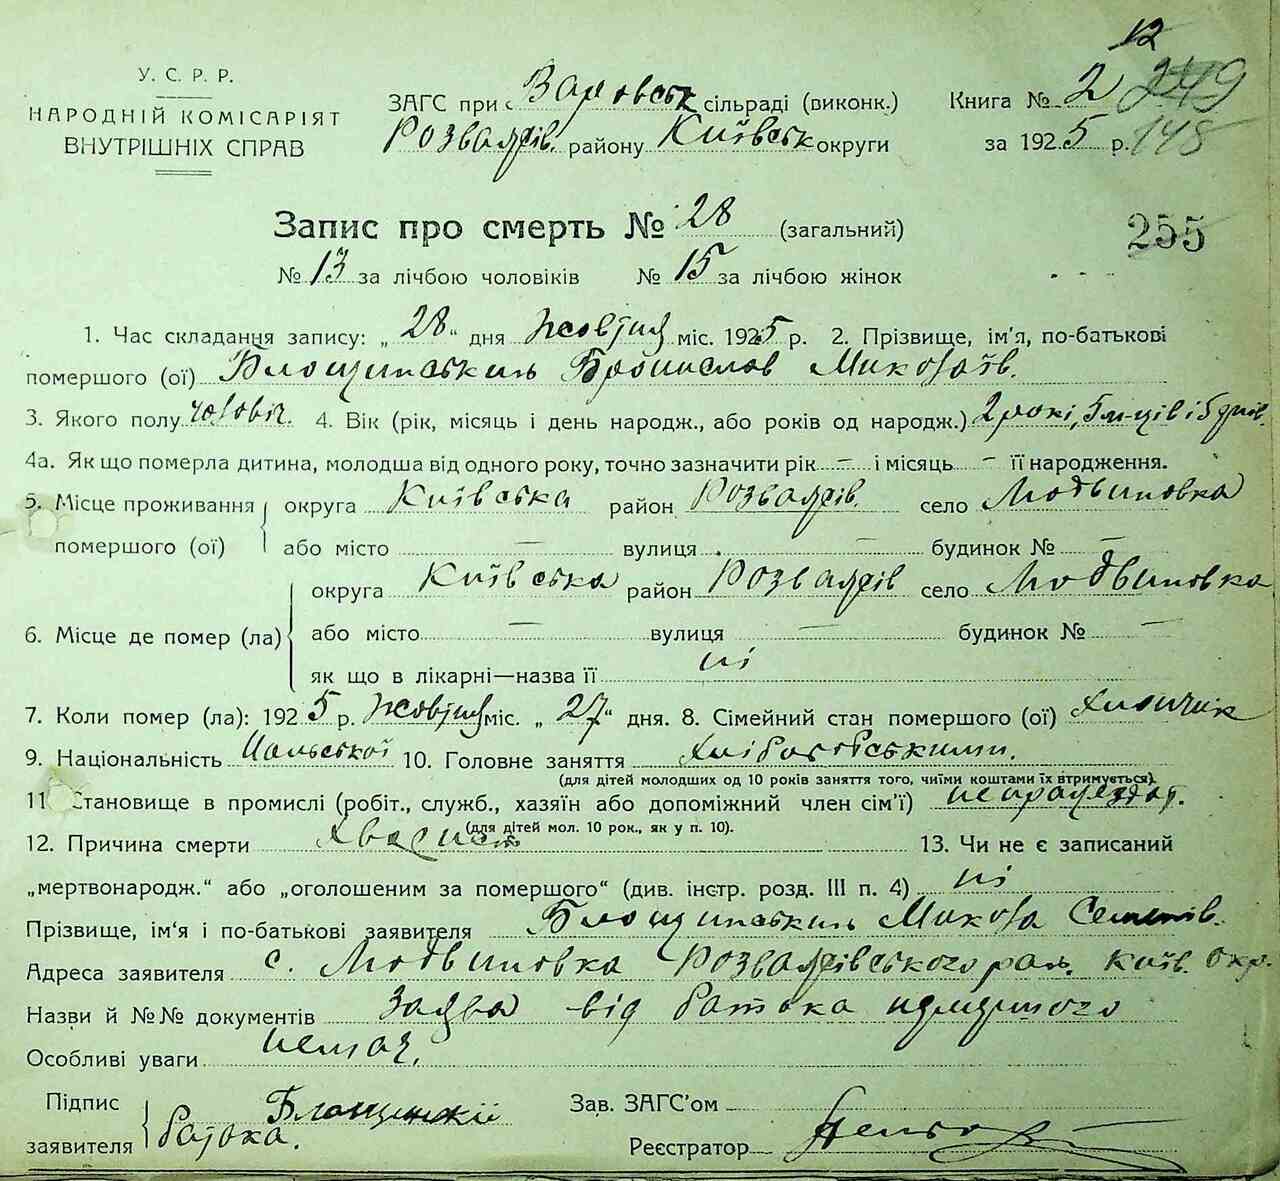 12
У. С. Р. Р.
НАРОДНІЙ КОМІСАРІЯТ
ВНУТРІШНІХ СПРАВ
ЗАГС при Варовськ сільраді (виконк.)
Розважів. району Київськ округи
Книга № 2 249
за 1925 р. 148
Запис про смерть № 28 (загальний)
255
№ 13 за лічбою чоловіків № 15 за лічбою жінок
1. Час складання запису: „28“ дня Жовтня міс. 1925 р. 2. Прізвище, ім'я, по-батькові
помершого (ої) Блощинський Броніслав Миколаїв.
3. Якого полу чоловіч. 4. Вік (рік, місяць і день народж., або років од народж.) 2 рокі, 5 м-ців і 5 днів.
4а. Як що померла дитина, молодша від одного року, точно зазначити рік — і місяць — її народження.
5. Місце проживання помершого (ої) округа Київська район Розважів. село Людвиновка
або місто — вулиця — будинок № —
6. Місце де помер (ла) округа Київська район Розважів село Людвиновка
або місто — вулиця — будинок № —
як що в лікарні—назва її ні
7. Коли помер (ла): 1925 р. Жовтня міс. „27“ дня. 8. Сімейний стан помершого (ої) хлопчик
9. Національність Польської 10. Головне заняття
(для дітей молодших од 10 років заняття того, чиїми коштами їх втримується).
11 Становище в промислі (робіт., служб., хазяїн або допоміжний член сім'ї) непрацездат.
(для дітей мол. 10 рок., як у п. 10).
12. Причина смерти 13. Чи не є записаний
„мертвонародж.“ або „оголошеним за помершого“ (див. інстр. розд. III п. 4) ні
Прізвище, ім'я і по-батькові заявителя Блощинський Микола Семенів.
Адреса заявителя с. Людвиновка Розважівського рай. Київ. окр.
Назви й №№ документів Заява від батька помершого
Особливі уваги немає.
Підпис заявителя Блощинский
батька.
Зав. ЗАГС'ом
Реєстратор